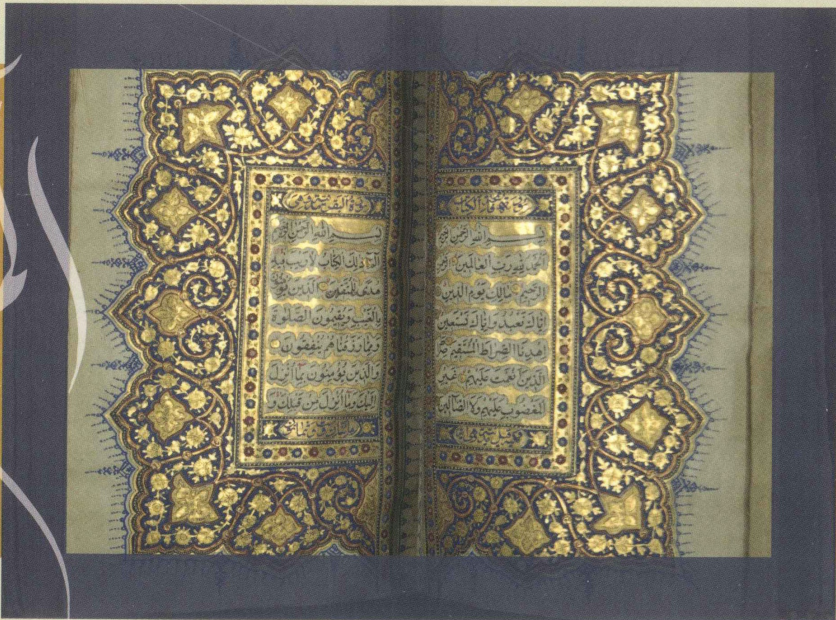 سورة فاتحة الكتاب
بسم الله الرحمن الرحيم
الحمد لله رب العالمين الرحمن
الرحيم مالك يوم الدين
إياك نعبد وإياك نستعين
اهدنا الصراط المستقيم صراط
الذين أنعمت عليهم غير
المغضوب عليهم ولا الضالين
بسم الله الرحمن الرحيم
الم ذلك الكتاب لا ريب فيه
هدى للمتقين الذين يؤمنون
بالغيب ويقيمون الصلوة
ومما رزقناهم ينفقون
والذين يؤمنون بما أنزل
إليك وما أنزل من قبلك و